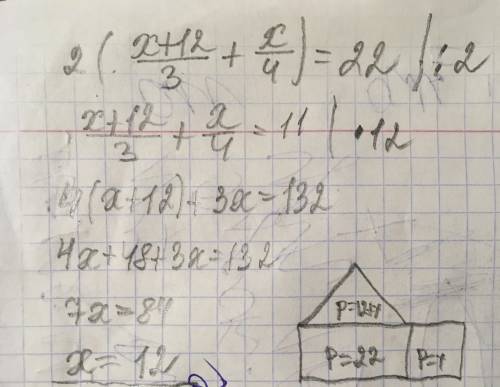 2(x+12/3 + x/4) = 22 | : 2
x+12/3 + x/4 = 11 | • 12
4(x+12) + 3x = 132
4x + 48 + 3x = 132
7x = 84
x = 12
P=12+x
P=22 P=x